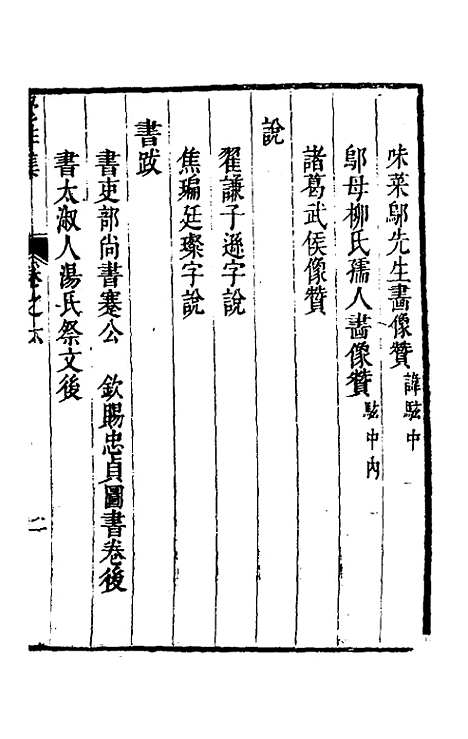 味菜鄔先生畫像贊 諱駭中
鄔母柳氏孺人畫像贊 駭中內
諸葛武侯像贊
說
翟謙子遜字說
焦瑞廷璨字說
書跋
書吏部尚書蹇公 欽賜忠貞圖書卷後
書太淑人湯氏祭文後
集 卷之六 二